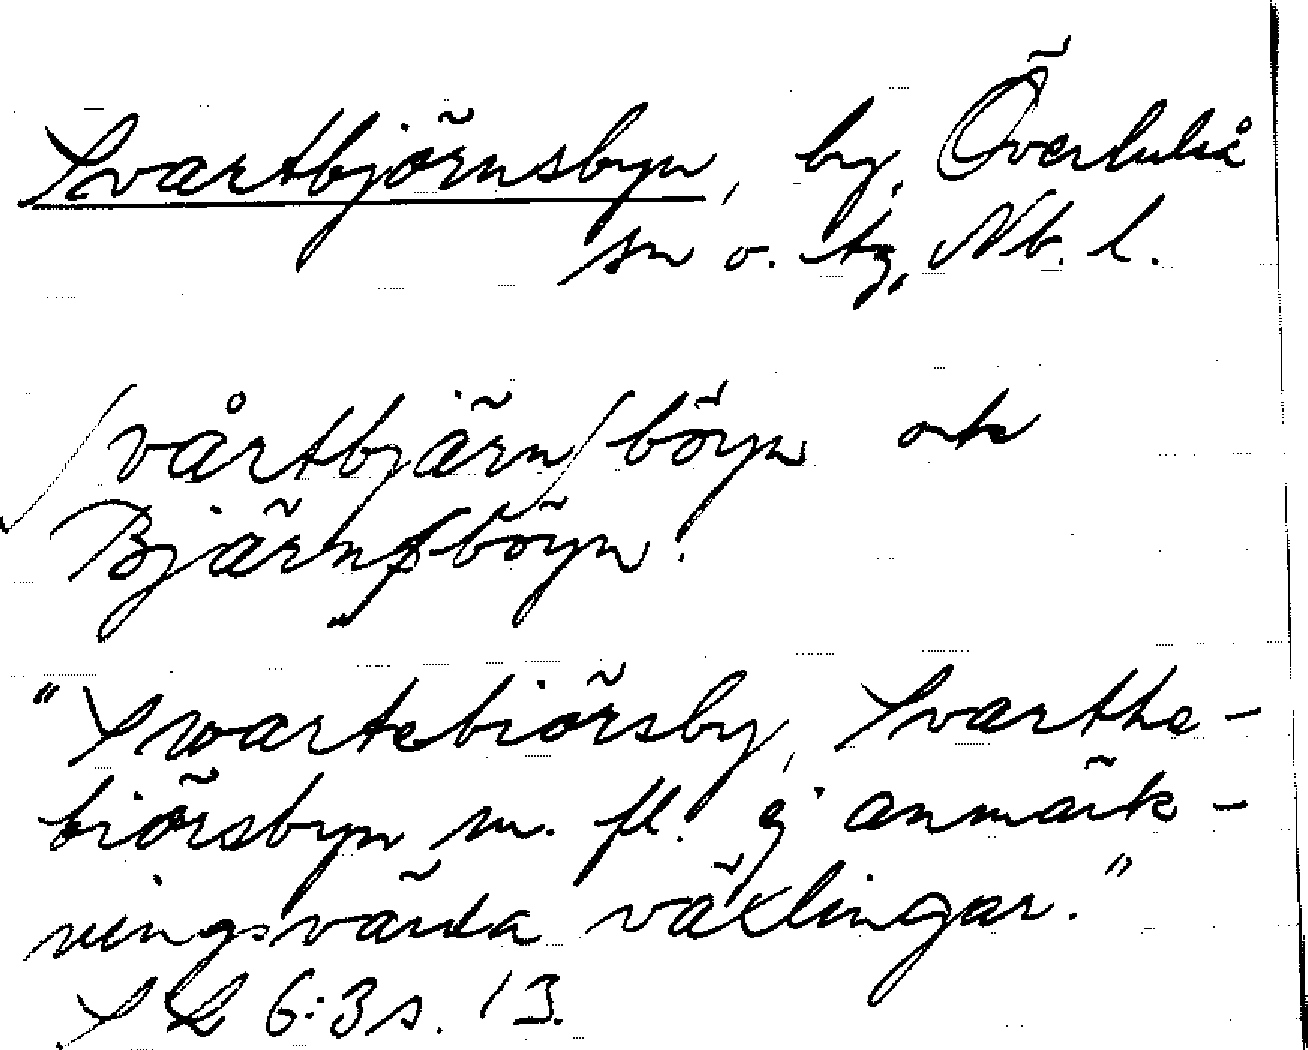 Svartbjörnsbyn, by, Överluleå
sn o. tg, Nb. l.
ʃvårtbjärnʃböyn och
Bjärnʃböyn.
"Swartebiörsby, Svarthe-
biörsbyn m. fl. ej anmärk-
ningsvärda växlingar."
SL 6:3 s. 13.